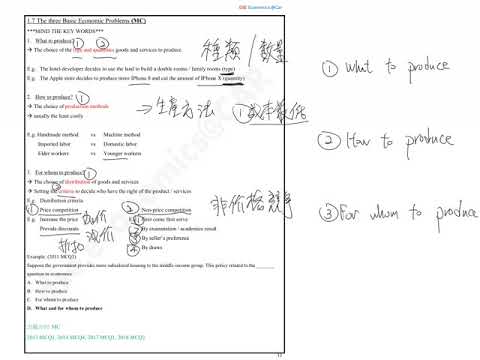 DSE Economics@Car
1.7 The three Basic Economic Problems (MC)
***MIND THE KEY WORDS***
① ②
1. What to produce?
→ The choice of the type and quantities goods and services to produce.
種類 / 數量
E.g. The hotel developer decides to use the land to build a double rooms / family rooms (type)
E.g. The Apple store decides to produce more IPhone 8 and cut the amount of IPhone X (quantity)
2. How to produce? ①
→ The choice of production methods
→ 生產方法
→ usually the least costly
① 成本最低
E.g. Handmade method vs Machine method
Imported labor vs Domestic labor
Elder workers vs Younger workers
3. For whom to produce? ①
→ The choice of distribution of goods and services
②
→ Setting the criteria to decide who have the right of the product / services
E.g. Distribution criteria
① Price competition
② Non-price competition
非价格競争
E.g. Increase the price
加价
① First come first serve
Provide discounts
减价
② By examination / academics result
折扣
③ By seller's preference
④ By draws
Example: (2011 MCQ2)
Suppose the government provides more subsidized housing to the middle-income group. This policy related to the ________
question in economics.
A. What to produce
B. How to produce
C. For whom to produce
D. What and for whom to produce
2013 MCQ1, 2014 MCQ6, 2017 MCQ1, 2018 MCQ2
① What to produce
② How to produce
③ For whom to produce